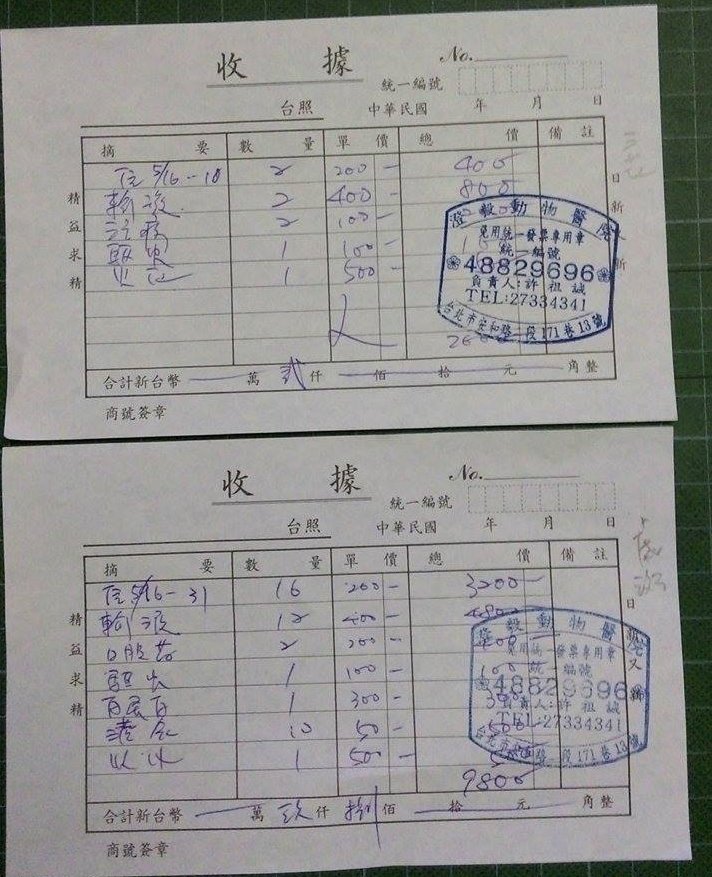 收 據
No.
統一編號
台照 中華民國 年 月 日
摘 要 數 量 單 價 總 價 備 註
住 5/16-18 2 200- 400
輸液 2 400- 800
2 100-
驅蟲 1 100-
1 500-
2000
精益求精
日新又新
澄毅動物醫院
免用統一發票專用章
統一編號
48829696
負責人:許祖誠
TEL:27334341
台北市安和路一段171巷13號
合計新台幣 萬 貳 仟 佰 拾 元 角整
商號簽章
收 據
No.
統一編號
台照 中華民國 年 月 日
摘 要 數 量 單 價 總 價 備 註
住 5/16-31 16 200- 3200-
輸液 12 400- 4800
口服藥 2 200-
驅虫 1 100- 100
1 300-
10 50-
1 500-
9800
精益求精
日新又新
澄毅動物醫院
免用統一發票專用章
統一編號
48829696
負責人:許祖誠
TEL:27334341
台北市安和路一段171巷13號
合計新台幣 萬 玖 仟 捌 佰 拾 元 角整
商號簽章